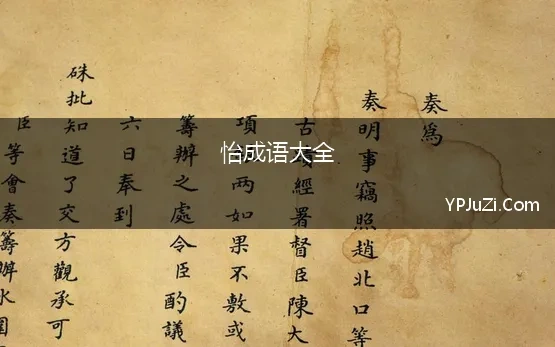 怡成语大全
YPJuZi.Com
奏為
奏明事竊照趙北口等
古經署督臣陳大
項兩如果不敷或
籌辦之處令臣酌議
六日奉到
硃批知道了交方觀承可
臣等會奏籌辦水圍